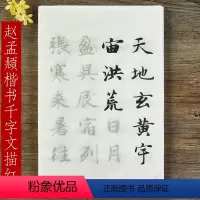 赵孟頫楷书千字文描红
天地玄黄宇
宙洪荒日月
盈昃辰宿列
張寒来暑往
粉象优品